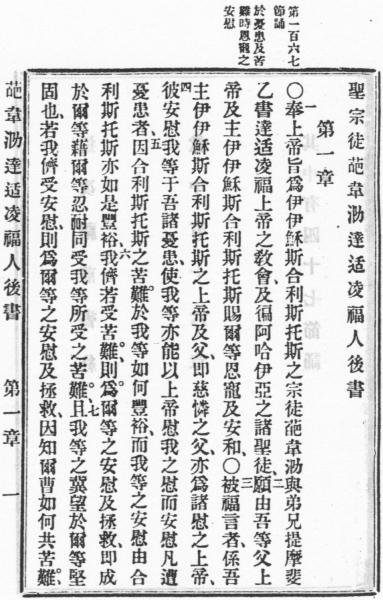 第一百六七
節誦
於憂患及苦
難時恩寵之
安慰
聖宗徒葩韋泐達适凌福人後書
第一章
一○奉上帝旨爲伊伊穌斯合利斯托斯之宗徒葩韋泐與弟兄提摩斐
乙書達适凌福上帝之敎會及徧阿哈伊亞之諸聖徒、二願由吾等父上
帝及主伊伊穌斯合利斯托斯賜爾等恩寵及安和、○三被福言者係吾
主伊伊穌斯合利斯托斯之上帝及父、即慈憐之父、亦爲諸慰之上帝、
四彼安慰我等于吾諸憂患使我等亦能以上帝慰我之慰而安慰凡遭
憂患者、五因合利斯托斯之苦難於我等如何豐裕、而我等之安慰由合
利斯托斯亦如是豐裕、六我儕若受苦難、則爲爾等之安慰及拯救即成
於爾等藉爾等忍耐同受我等所受之苦難、七且我等之冀望於爾等堅
固也、若我儕受安慰、則爲爾等之安慰及拯救、因知爾曹如何共苦難、
葩韋泐達适凌福人後書 第一章 一